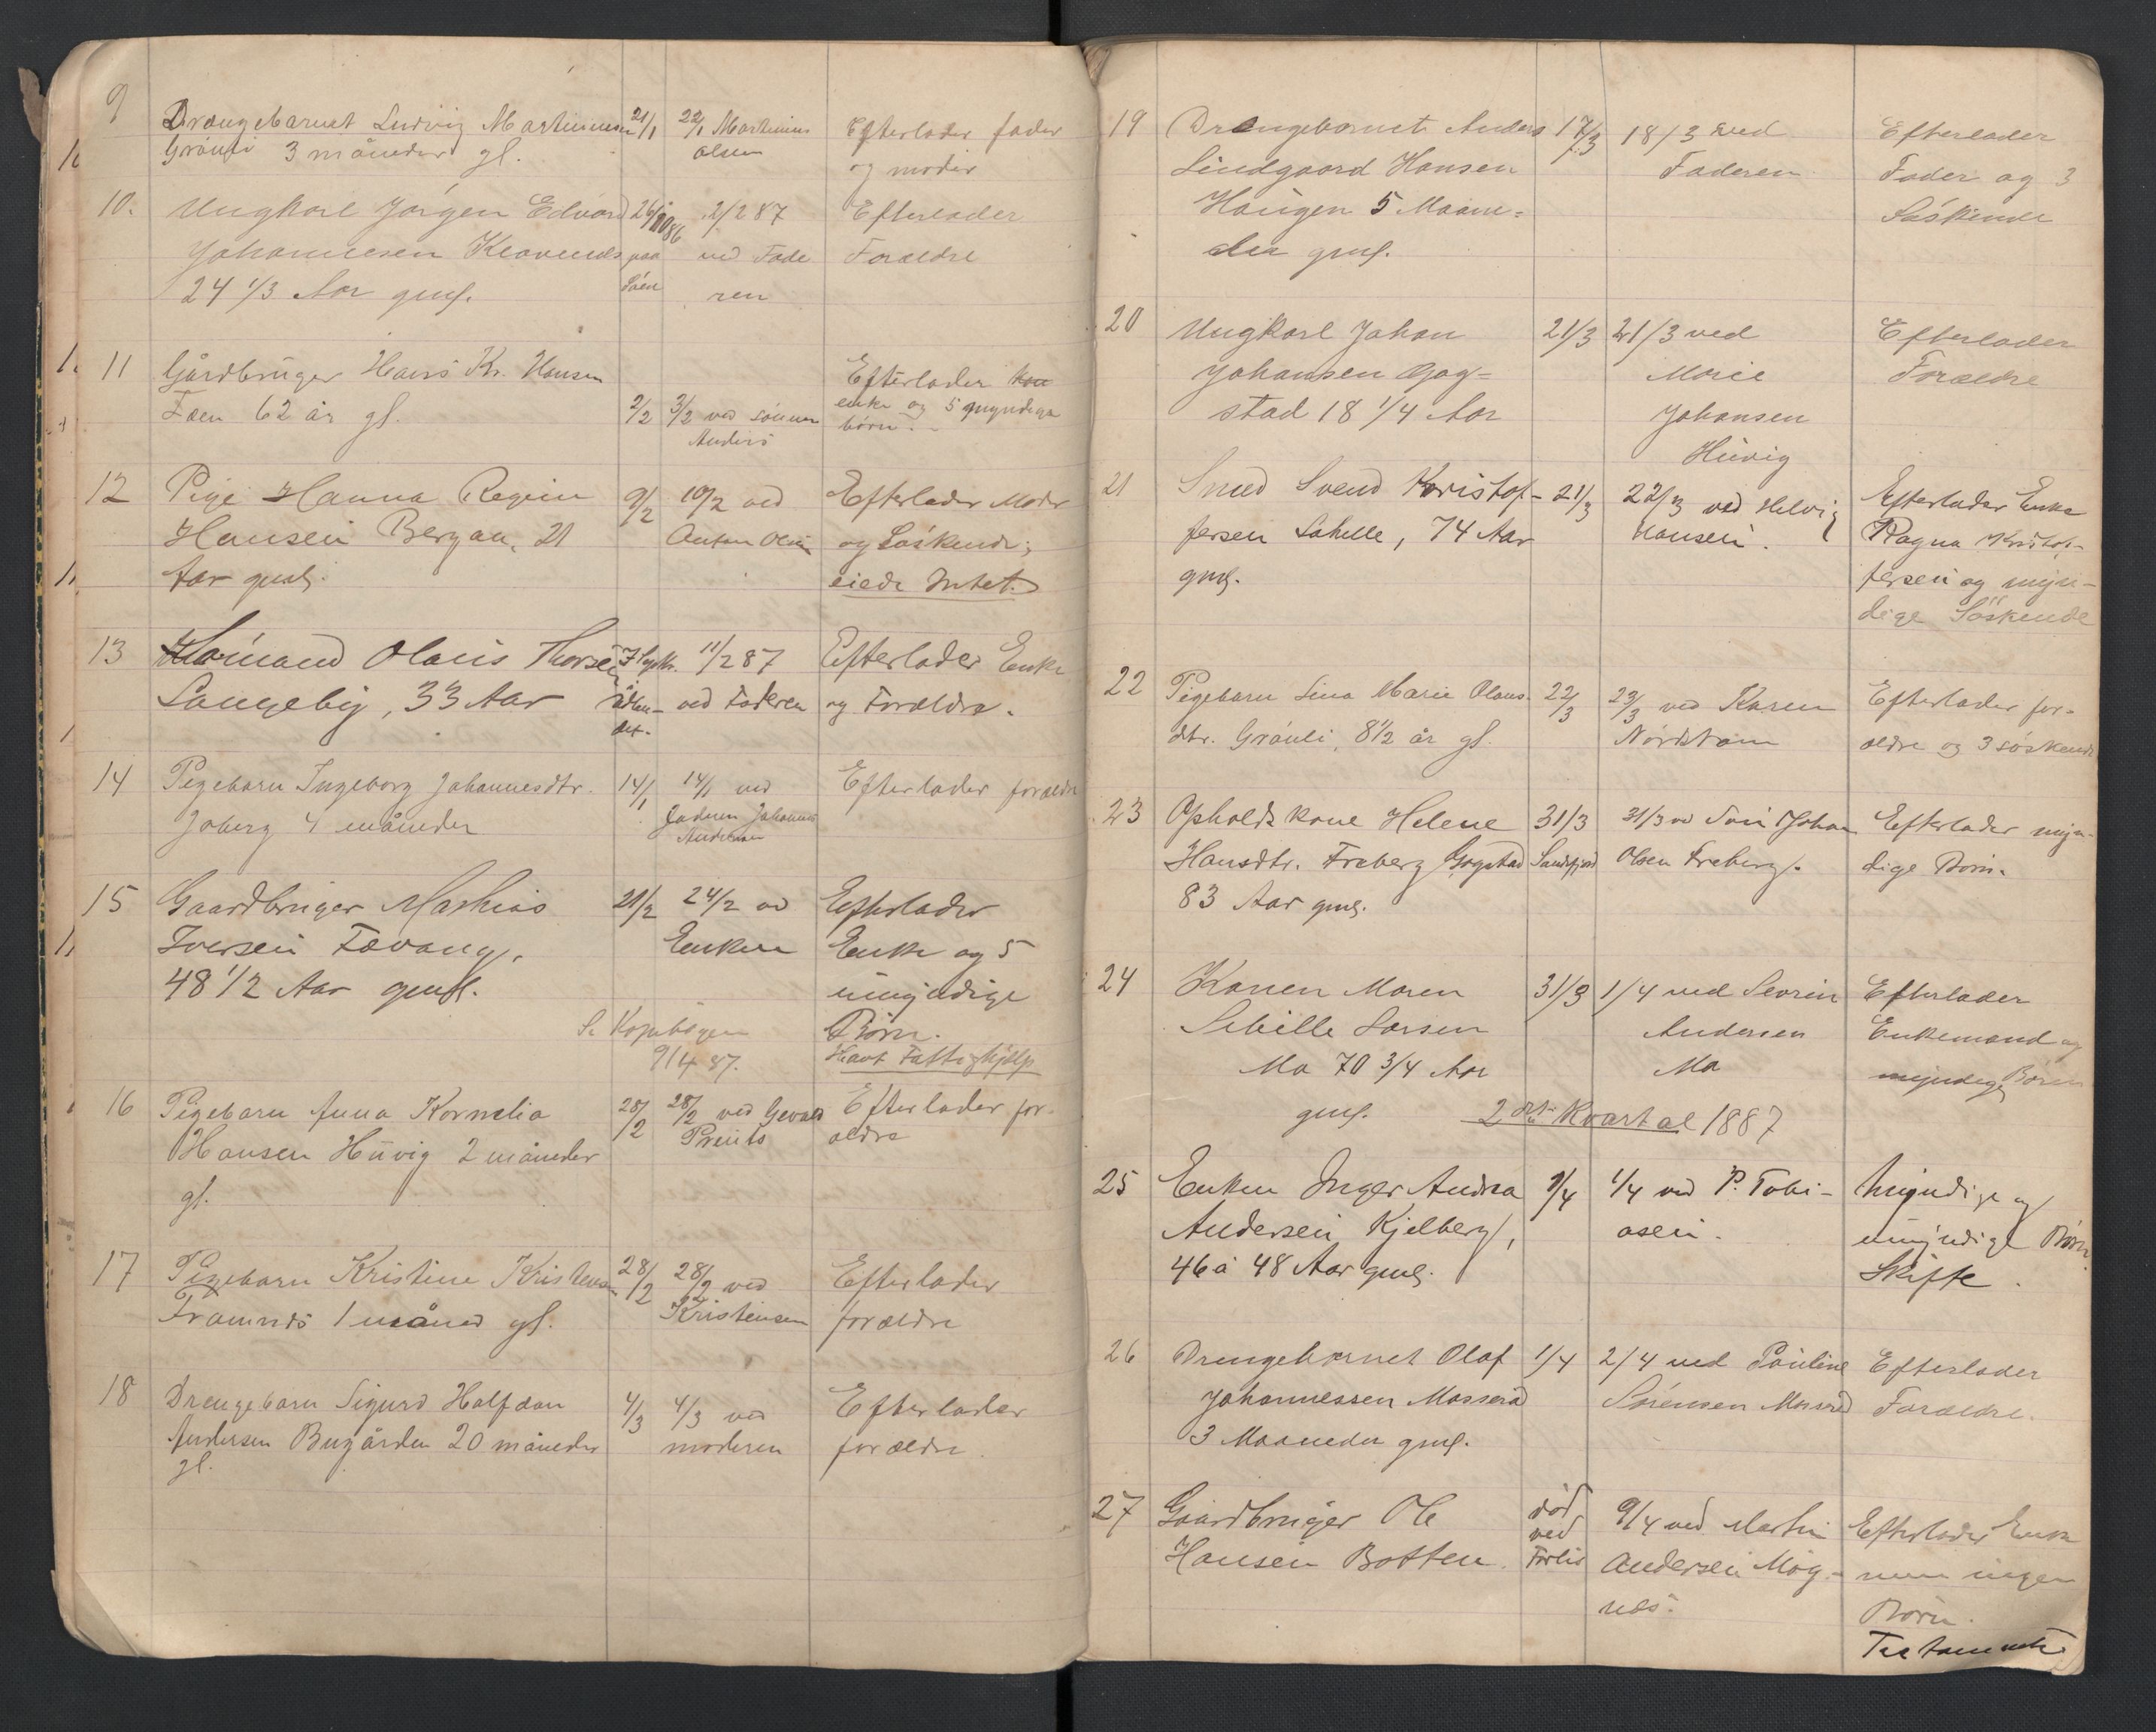 9
Drængebarnet Ludvig Martinusen 21/1 22/1 Martinius Efterlader fader
Grånli 3 måneder gl. Olsen og moder
10. Ungkarl Jørgen Edvard 26/10 86 2/2 87 Efterlader
Johannesen Klavenæs paa ved Fade Forældre
24 1/3 Aar gml. Söen ren
11 Gårdbruger Hans Kr. Hansen Efterlader kone
Fæn 62 år gl. 2/2 3/2 ved sönnen enke og 5 myndige
Anders börn.
12 Pige Hanna Regine 9/2 10/2 ved Efterlader Moder
Hansen Bergan, 21 Anton Olsen og Söskende;
Aar gml. eiede Intet.
13 Sömand Olaus Thorsen 11/2 87 Efterlader Enke
Langeby, 33 Aar udlan- ved Faderen og Forældre.
det.
14 Pigebarn Ingeborg Johannesdtr. 14/1 14/1 ved Efterlader forældre
Joberg 4 måneder faderen Johannes
Andersen
15 Gaardbruger Mathias 21/2 24/2 ved Efterlader
Iversen Fævang, Enken Enke og 5
48 1/2 Aar gml. umyndige
S. Kopibogen Börn.
9/4 87. Havt Fattighjælp
16 Pigebarn Anna Kornelia 28/2 28/2 ved Gevald Efterlader for-
Hansen Huvig 2 måneder Preuts ældre
gl.
17 Pigebarn Kristine Kristensen 28/2 28/2 ved Efterlader
Framnæs 1 måned gl. Kristensen forældre
18 Drengebarn Sigurd Halfdan 4/3 4/3 ved Efterlader
Andersen Bugården 20 måneder moderen forældre.
gl.
19 Drengebarnet Anders 17/3 18/3 ved Efterlader
Lindgaard Hansen Faderen Fader og 3
Haugen 5 Maane= Söskende
der gml.
20 Ungkarl Johan 21/3 21/3 ved Efterlader
Johansen Gog= Marie Forældre
stad 18 1/4 Aar Johansen
Huvig
21 Smed Svend Kristof- 21/3 22/3 ved Helvig Efterlader Enke
fersen Lahelle, 74 Aar Hansen. Ragna Kristof-
gml. fersen og myn-
dige Söskende
22 Pigebarn Lina Marie Olaus- 22/3 23/3 ved Karen Efterlader for-
dtr. Grånli, 8 1/2 år gl. Nordström ældre og 3 söskende
23 Opholdskone Helene 31/3 31/3 ved Sön Johan Efterlader myn-
Hansdtr. Freberg Gogstad Sandefjord Olsen Freberg. dige Börn.
83 Aar gml.
24 Konen Maren 31/3 1/4 ved Severin Efterlader
Sebille Larsen Andersen Enkemand og
Mo 70 3/4 Aar Mo myndige Börn
gml. 2det Kvartal 1887
25 Enken Inger Andrea 1/4 1/4 ved P. Tobi- Myndige og
Andersen Kjelberg, asen. umyndige Börn.
46 à 48 Aar gml. Skifte.
26 Drengebarnet Olaf 1/4 2/4 ved Pauline Efterlader
Johannessen Masserød Sörensen Massrød Forældre.
3 Maaneder gml.
27 Gaardbruger Ole död 9/4 ved Martin Efterlader Enke
Hansen Botten. ved Forlis Andersen Mög- men ingen
næs. Börn.
Testamente